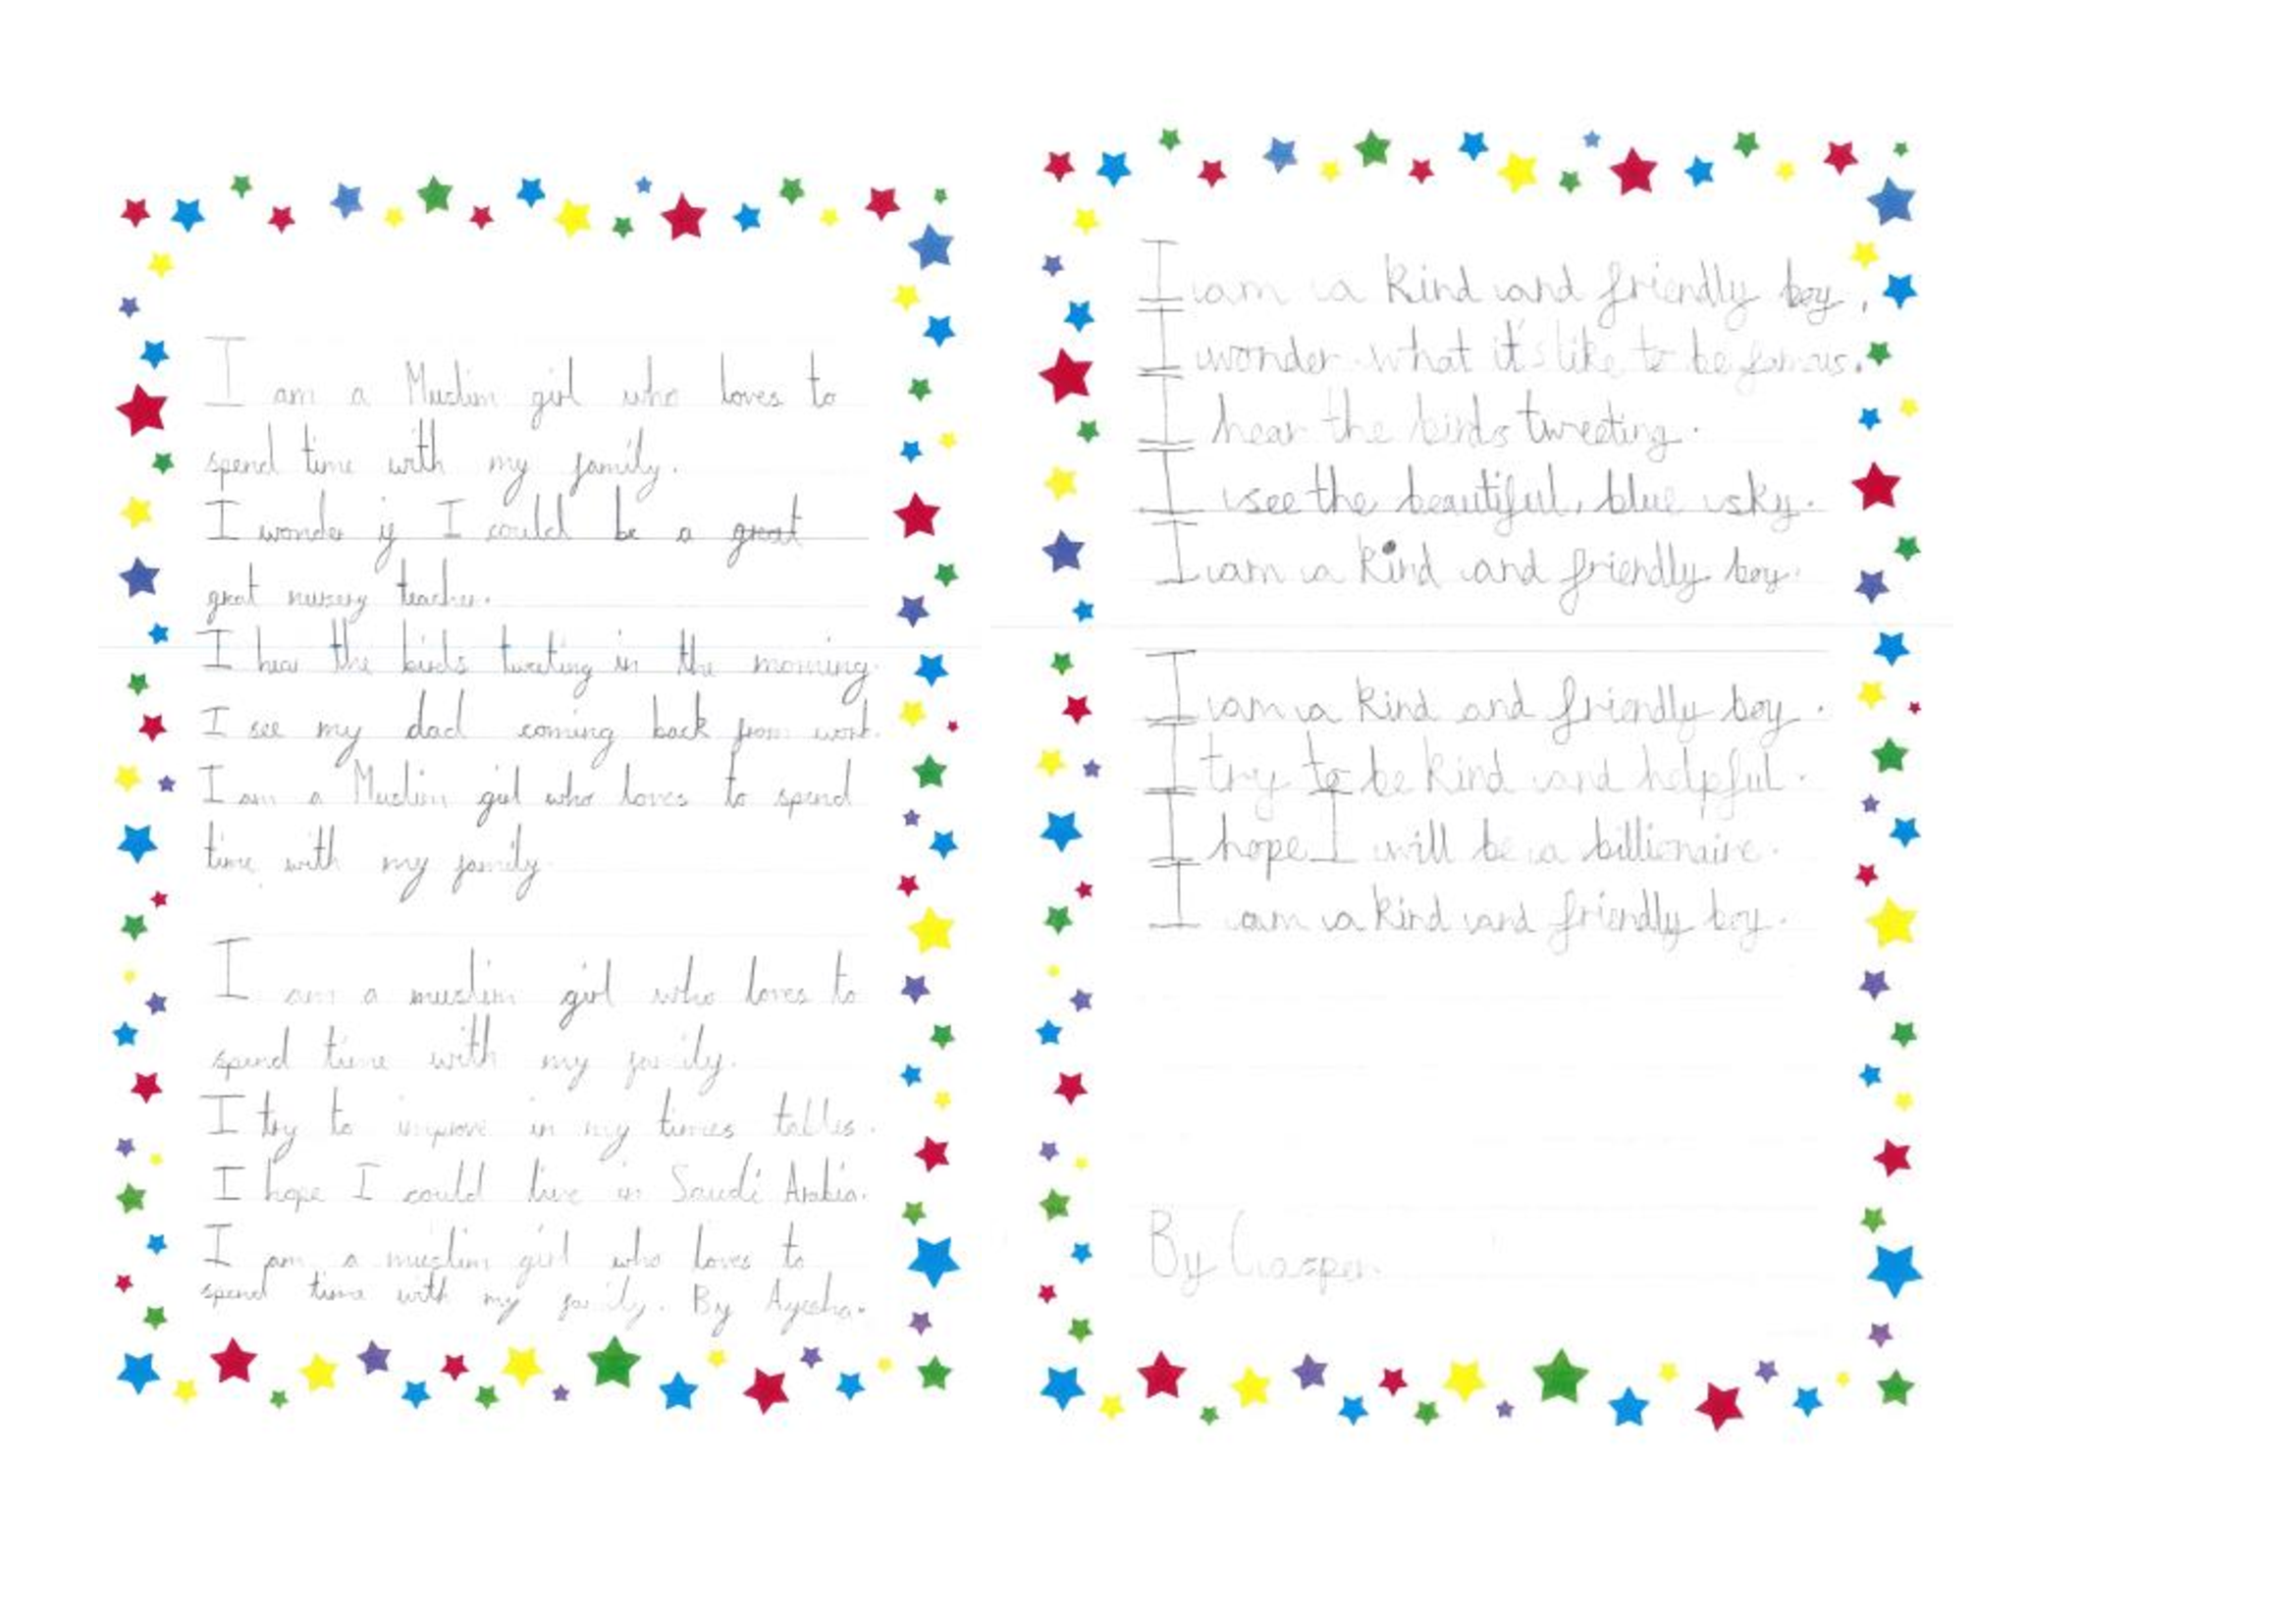 I am a Muslim girl who loves to
spend time with my family.
I wonder if I could be a great
great nursery teacher.
I hear the birds tweeting in the morning.
I see my dad coming back from work.
I am a Muslim girl who loves to spend
time with my family.
I am a muslim girl who loves to
spend time with my family.
I try to improve in my times tables.
I hope I could live in Saudi Arabia.
I am a muslim girl who loves to
spend time with my family. By Ayesha.
I am a kind and friendly boy.
I wonder what it's like to be famous.
I hear the birds tweeting.
I see the beautiful, blue sky.
I am a kind and friendly boy.
I am a kind and friendly boy.
I try to be kind and helpful.
I hope I will be a billionaire.
I am a kind and friendly boy.
By Casper